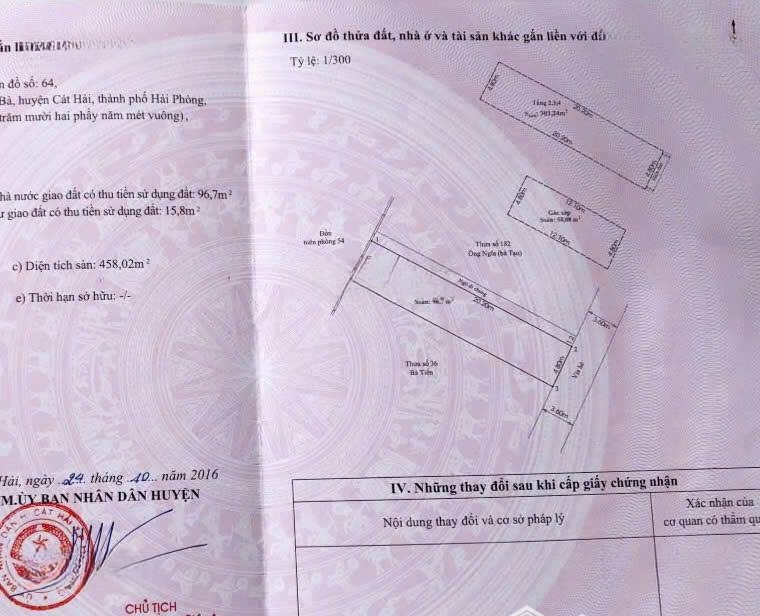 n đồ số: 64,
Bà, huyện Cát Hải, thành phố Hải Phòng,
trăm mười hai phẩy năm mét vuông),
hà nước giao đất có thu tiền sử dụng đất: 96,7m²
giao đất có thu tiền sử dụng đất: 15,8m²
c) Diện tích sàn: 458,02m²
e) Thời hạn sở hữu: -/-
Hải, ngày 24 tháng 10 năm 2016
M.ỦY BAN NHÂN DÂN HUYỆN
CHỦ TỊCH
III. Sơ đồ thửa đất, nhà ở và tài sản khác gắn liền với đấ
Tỷ lệ: 1/300
4.80m
Tầng 2,3,4
301,24m²
20.90m
4.80m
4.80m
12.10m
Gác xép
12.10m
4.80m
Đồn
biên phòng 54
Thửa số 182
Ông Nghĩa (bà Tạo)
Ngõ đi chung
20.20m
96,7 m²
Thửa số 36
Bà Tiến
1
2
3
4.80m
Vỉa hè
3.60m
3.60m
IV. Những thay đổi sau khi cấp giấy chứng nhận
Nội dung thay đổi và cơ sở pháp lý
Xác nhận của
cơ quan có thẩm qu